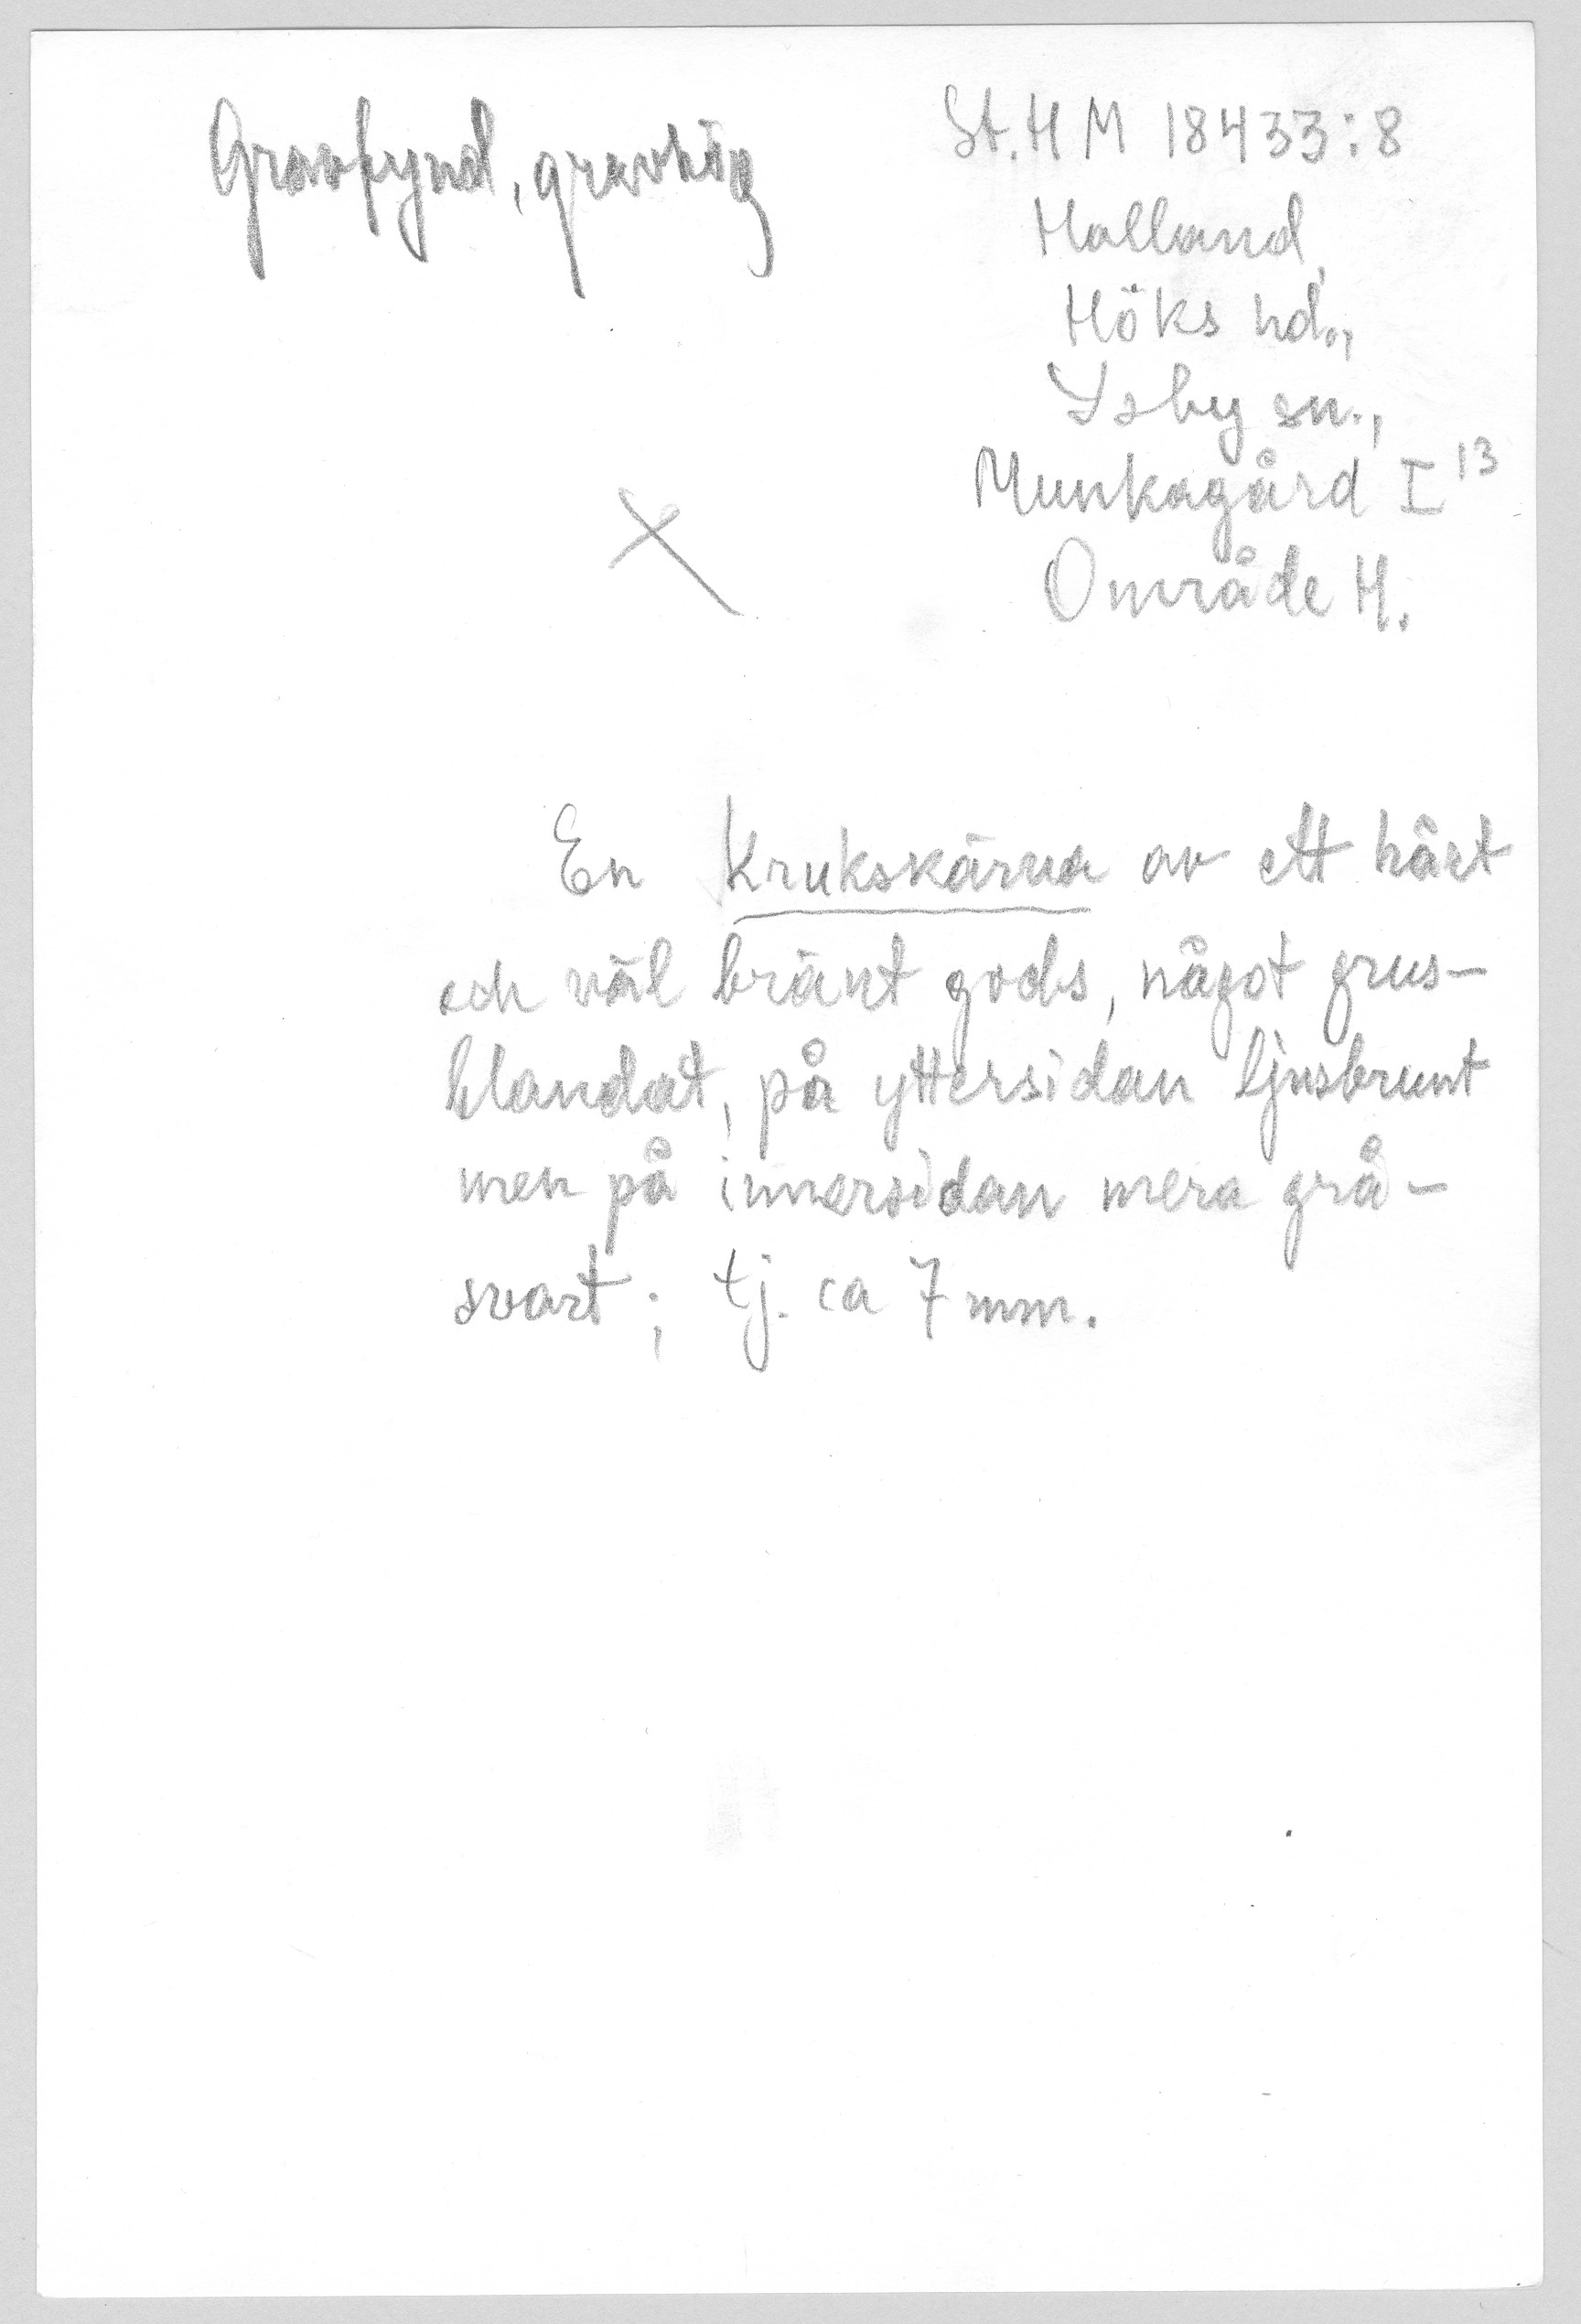 Gravfynd, gravhög
St.H M 18433:8
Halland,
Höks hd.,
Ysby sn.,
Munkagård I 13
Område H.
En Krukskärva av ett hårt
och väl bränt gods, något grus-
blandat, på yttersidan ljusbrunt
men på innersidan mera grå-
svart; tj. ca 7 mm.